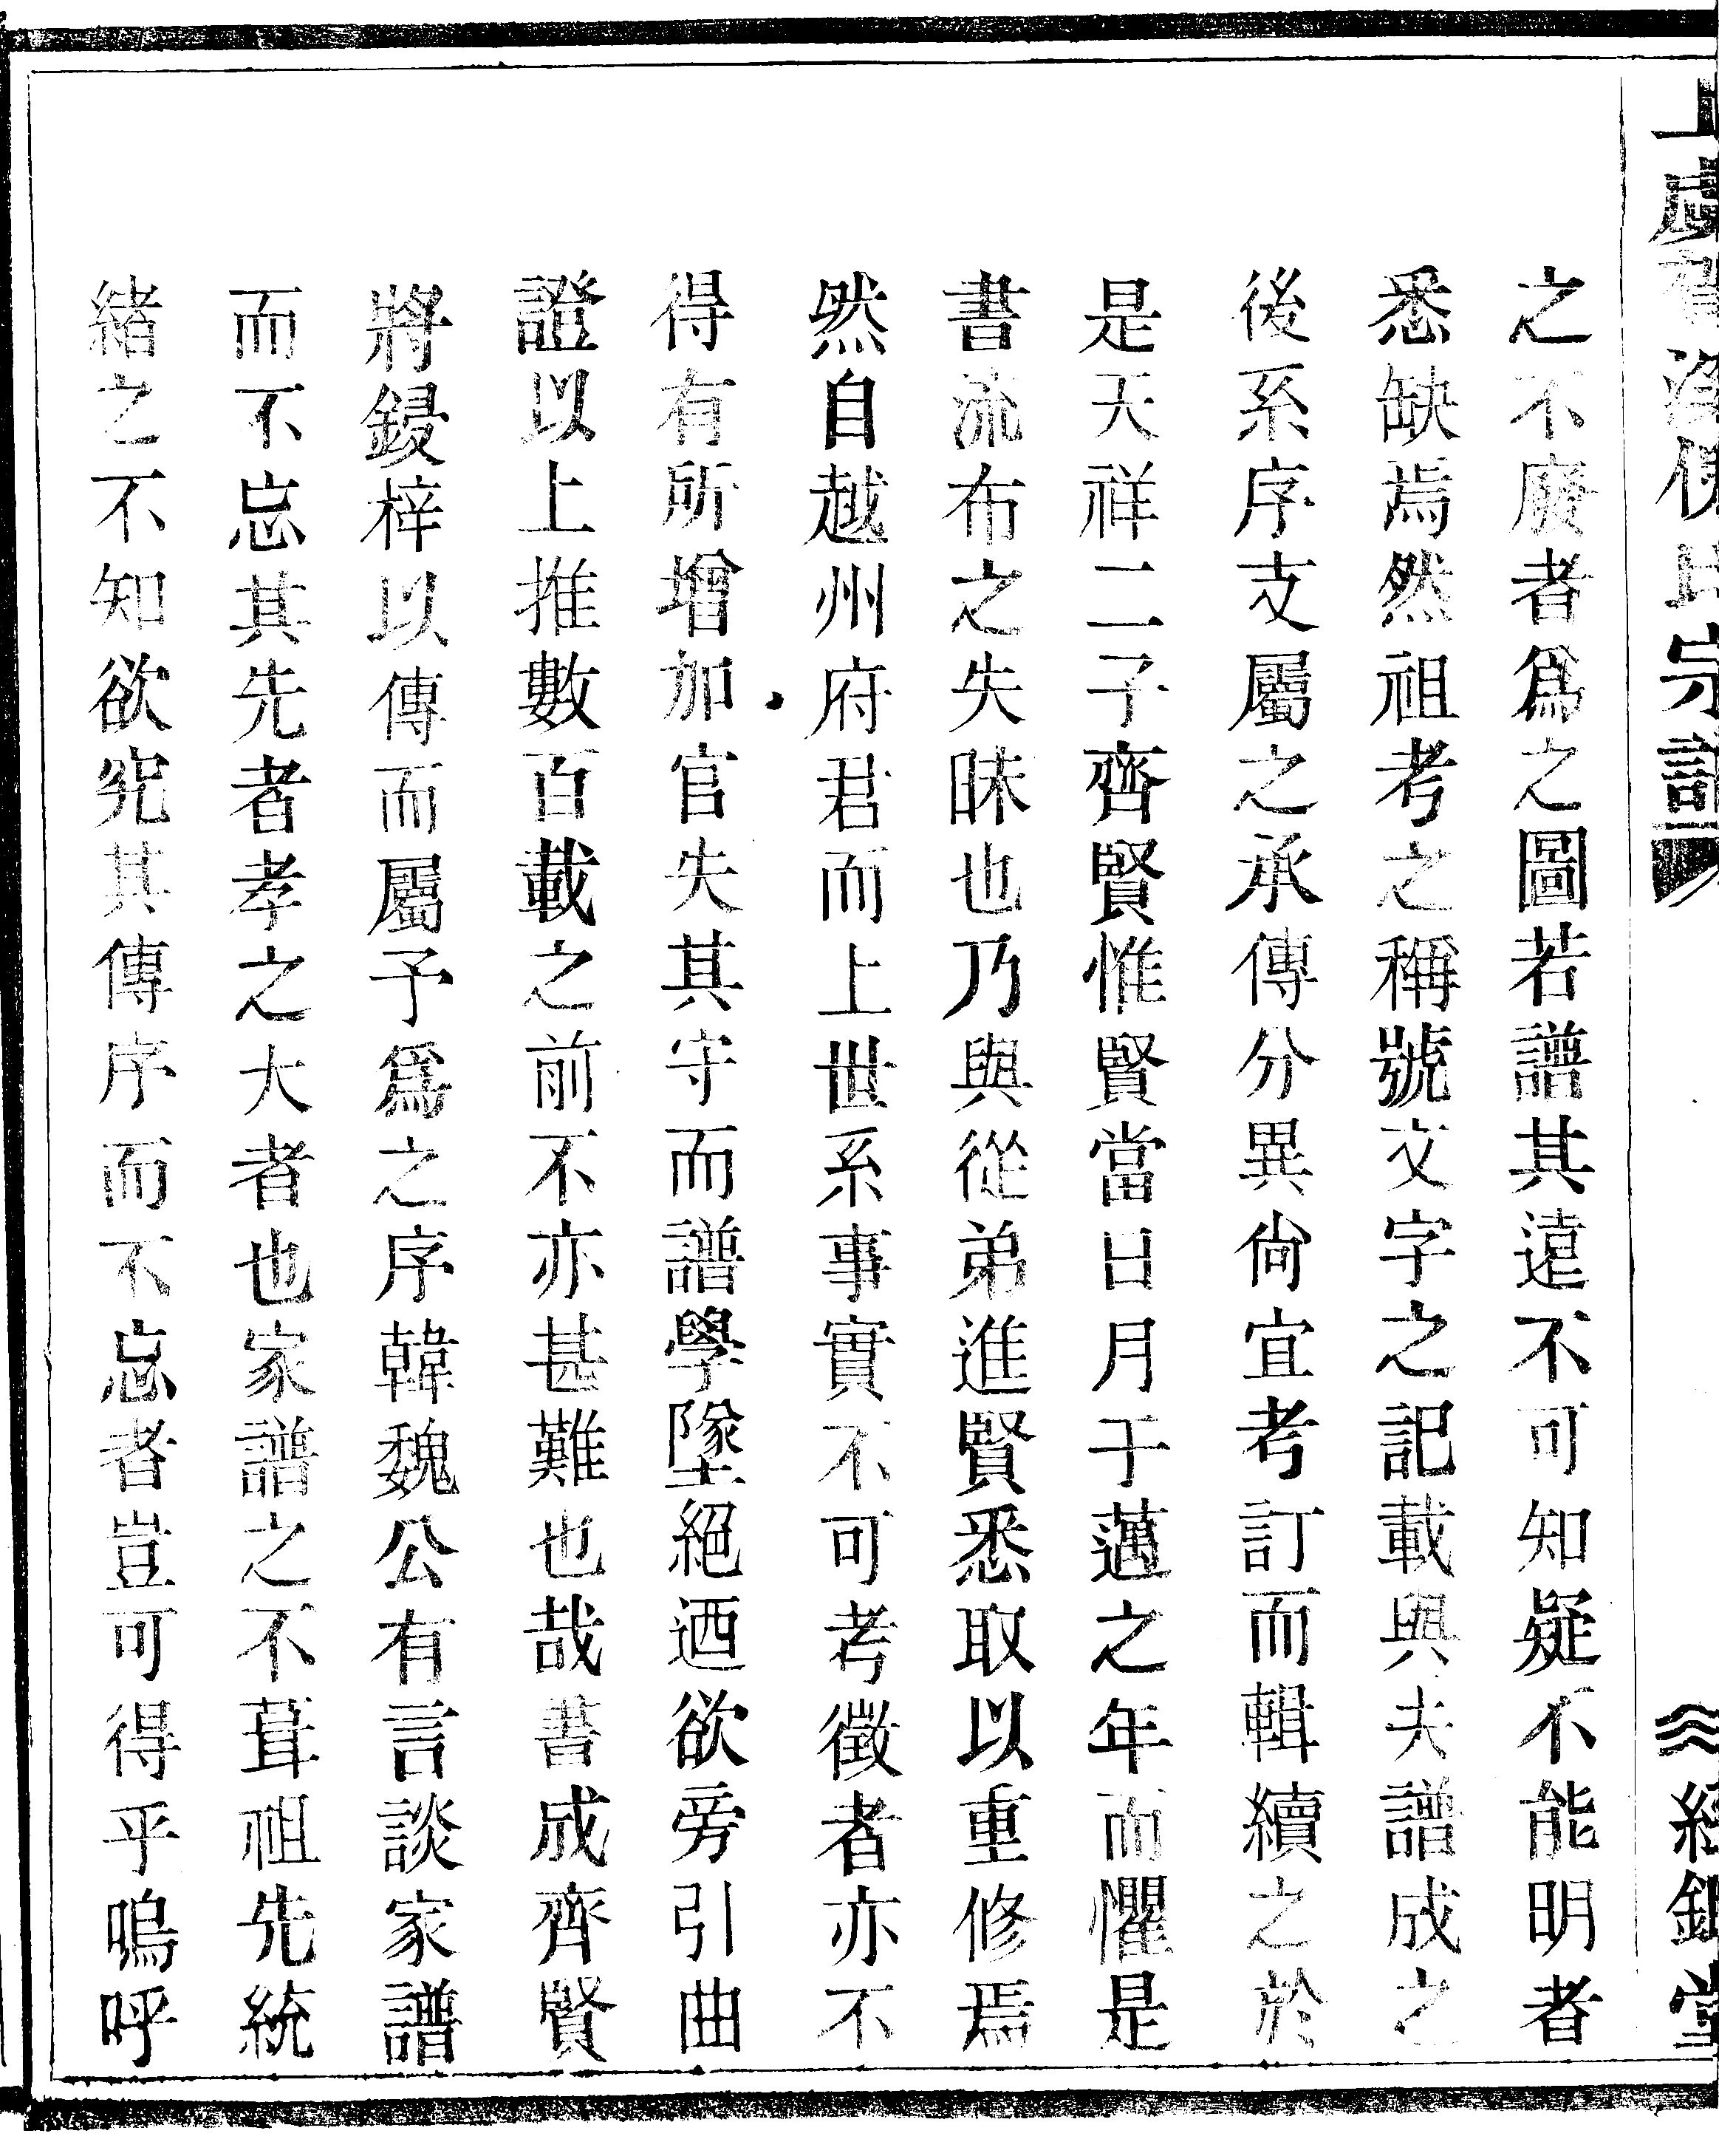 之不廢者爲之圖若譜其遠不可知疑不能明者
悉缺焉然祖考之稱號文字之記載與夫譜成之
後系序支屬之承傳分異尙宜考訂而輯續之於
是天祥二子齊賢惟賢當日月于邁之年而懼是
書流布之失昧也乃與從弟進賢悉取以重修焉
然自越州府君而上世系事實不可考徵者亦不
得有所增加官失其守而譜學墜絕迺欲旁引曲
證以上推數百載之前不亦甚難也哉書成齊賢
將鋟梓以傳而屬予爲之序韓魏公有言談家譜
而不忘其先者孝之大者也家譜之不葺祖先統
緒之不知欲究其傳序而不忘者豈可得乎嗚呼